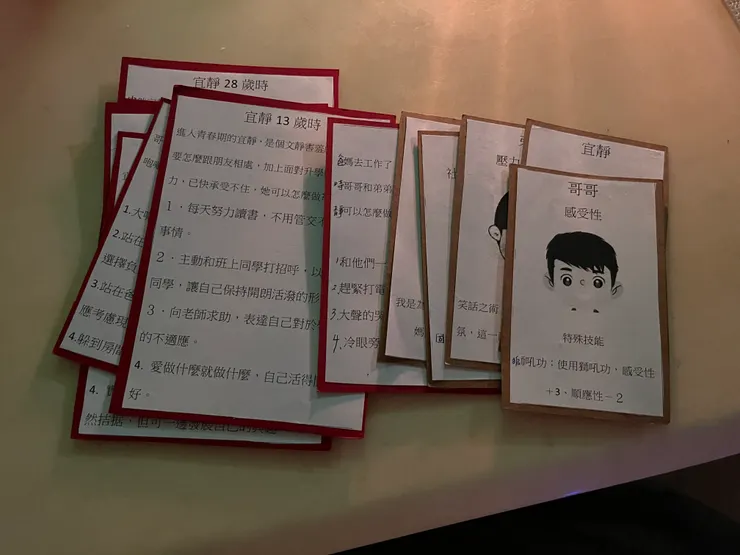 宜靜 28 歲時
宜靜 13 歲時
進入青春期的宜靜，是個文靜害羞
要怎麼跟朋友相處，加上面對升學
力，已快承受不住，她可以怎麼做
1．每天努力讀書，不用管交
事情。
2．主動和班上同學打招呼，以
同學，讓自己保持開朗活潑的形
3．向老師求助，表達自己對於
的不適應。
4. 愛做什麼就做什麼，自己活得
好。
1.大
2.站在
選擇負
3.站在爸
應考慮現
4.躲到房間
4.
爸媽去工作了
時哥哥和弟弟
靜可以怎麼做
1和他們一
2.趕緊打電
3.大聲的哭
4.冷眼旁
我是
媽
國
壓力
笑話之術
氛，這一
宜靜
哥哥
感受性
特殊技能
獅吼功：使用獅吼功，感受性
+3，順應性－2